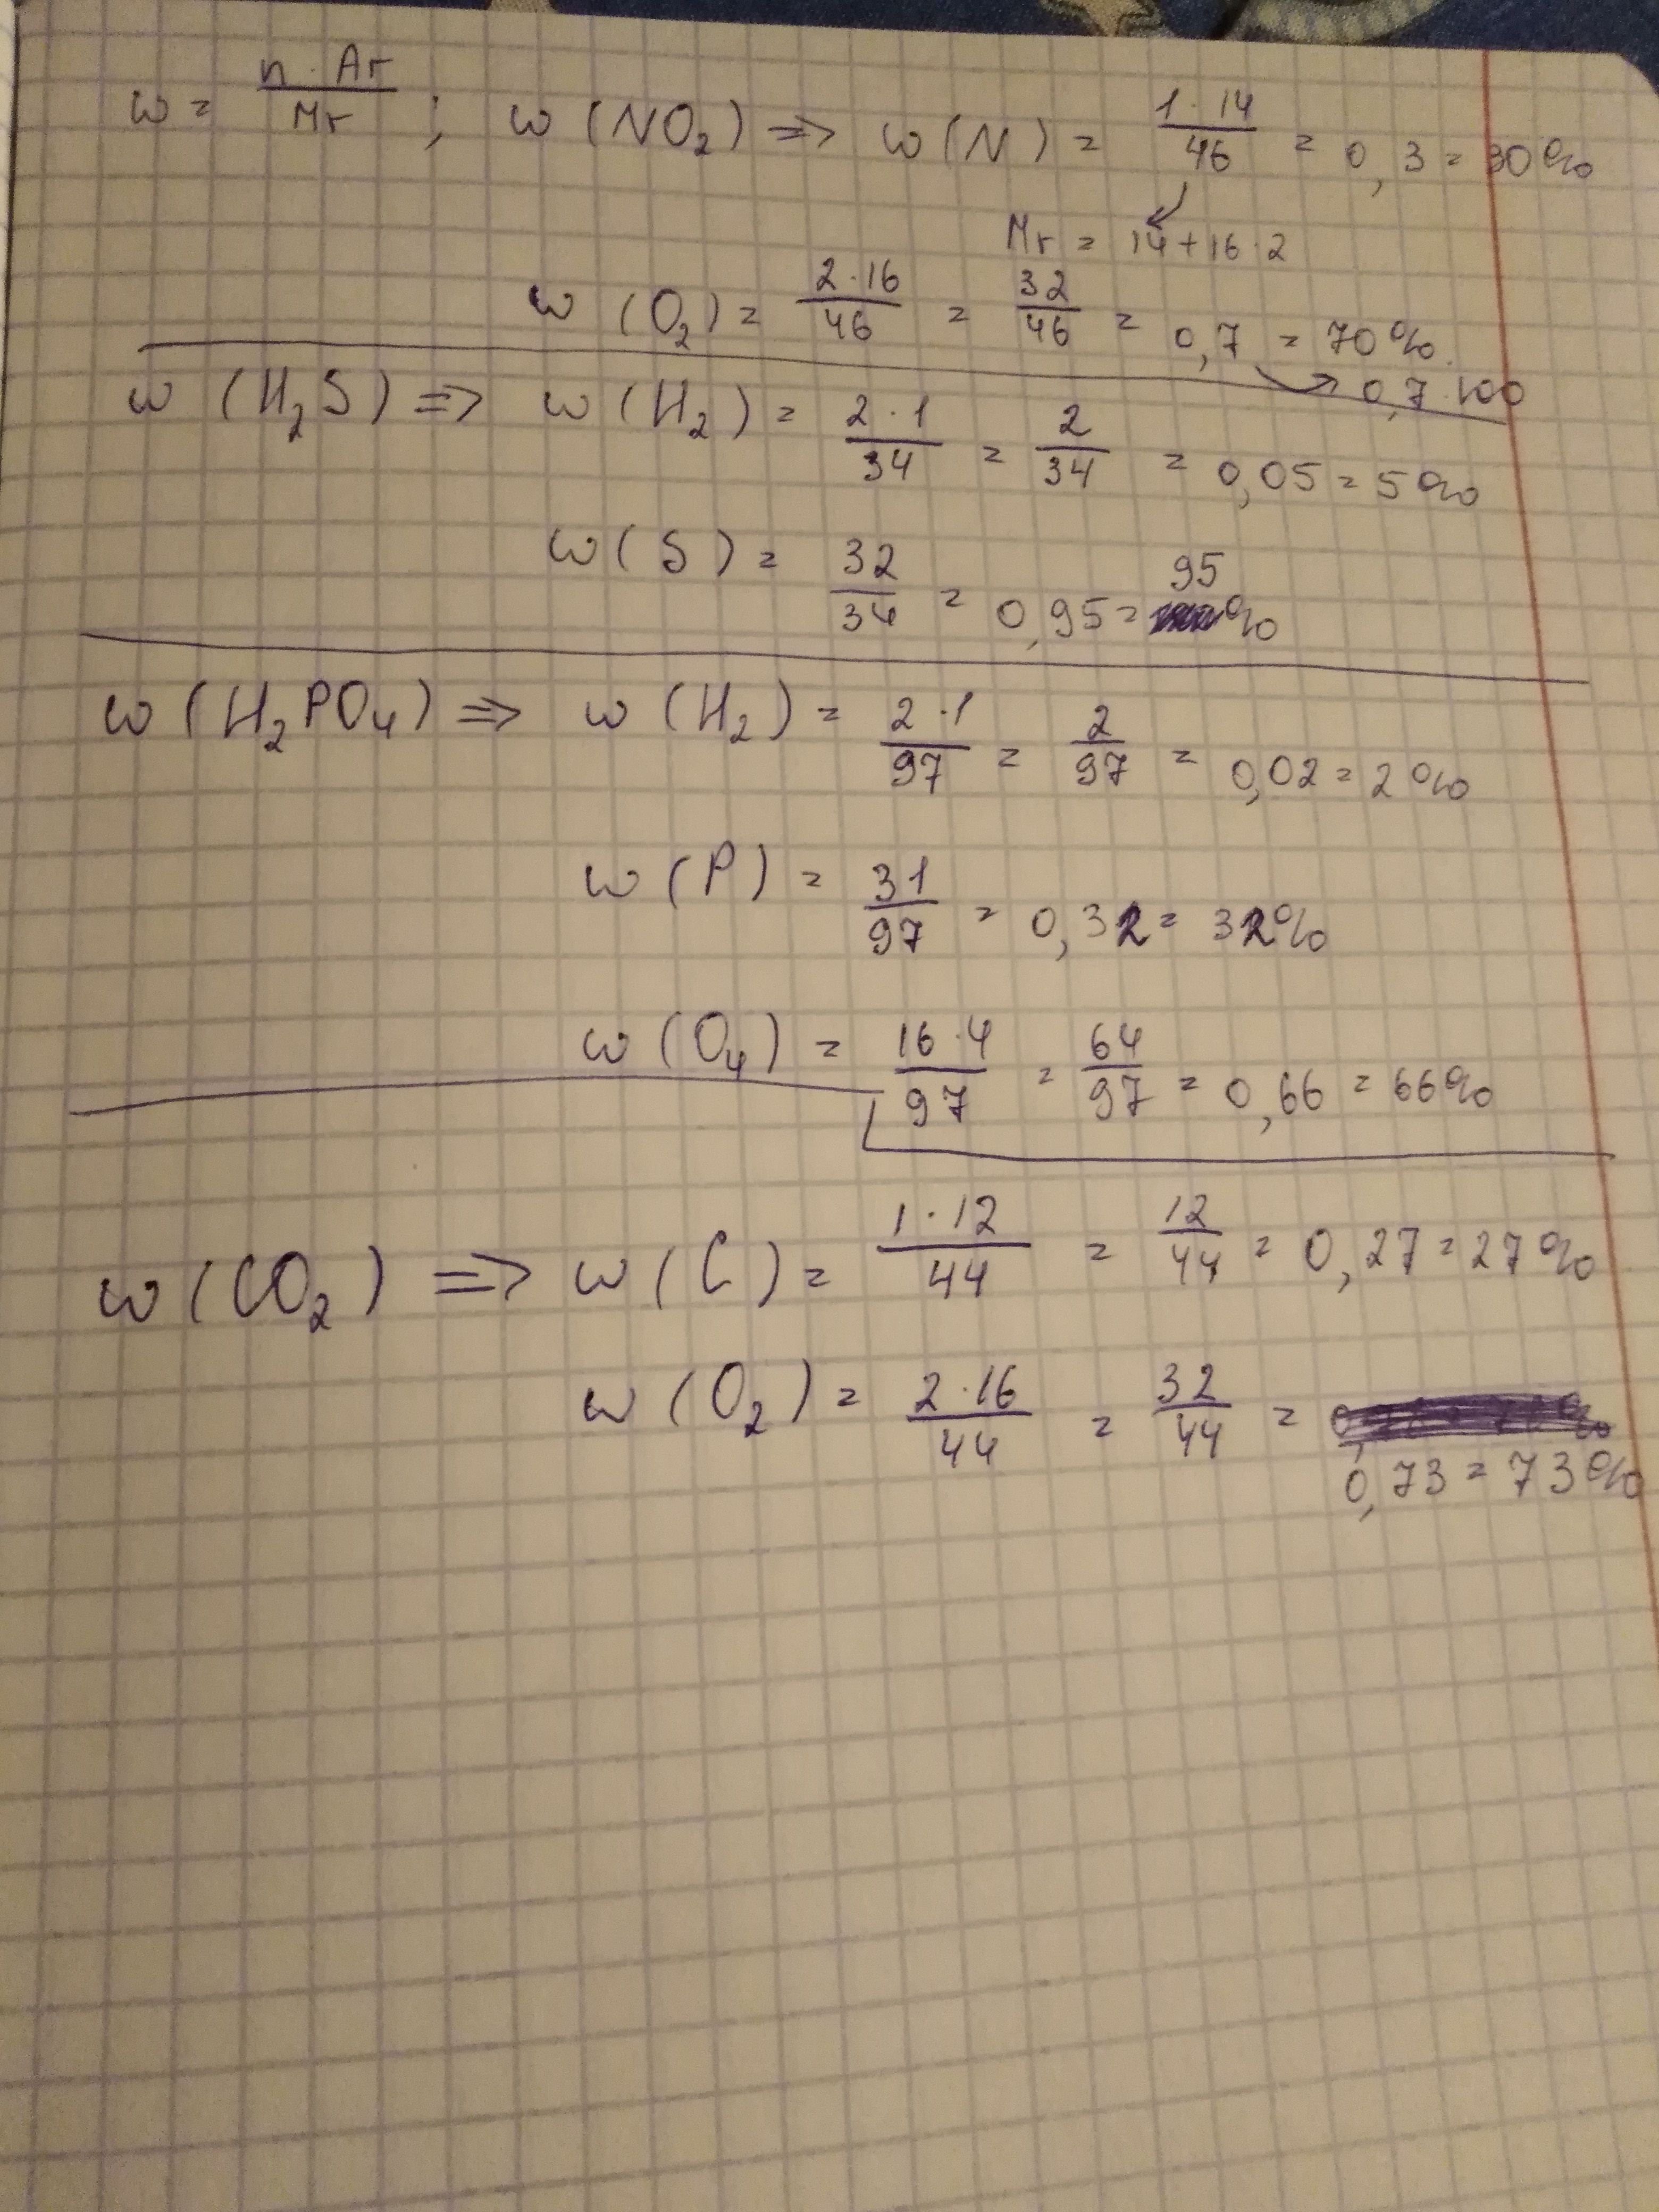 ω = n · Ar / Mr ; ω (NO₂) => ω (N) = 1 · 14 / 46 = 0,3 = 30%
Mr = 14 + 16 · 2
ω (O₂) = 2 · 16 / 46 = 32 / 46 = 0,7 = 70%.
0,7 · 100
ω (H₂S) => ω (H₂) = 2 · 1 / 34 = 2 / 34 = 0,05 = 5%
ω (S) = 32 / 34 = 0,95 = 95%
ω (H₂PO₄) => ω (H₂) = 2 · 1 / 97 = 2 / 97 = 0,02 = 2%
ω (P) = 31 / 97 = 0,32 = 32%
ω (O₄) = 16 · 4 / 97 = 64 / 97 = 0,66 = 66%
ω (CO₂) => ω (C) = 1 · 12 / 44 = 12 / 44 = 0,27 = 27%
ω (O₂) = 2 · 16 / 44 = 32 / 44 =
0,73 = 73%